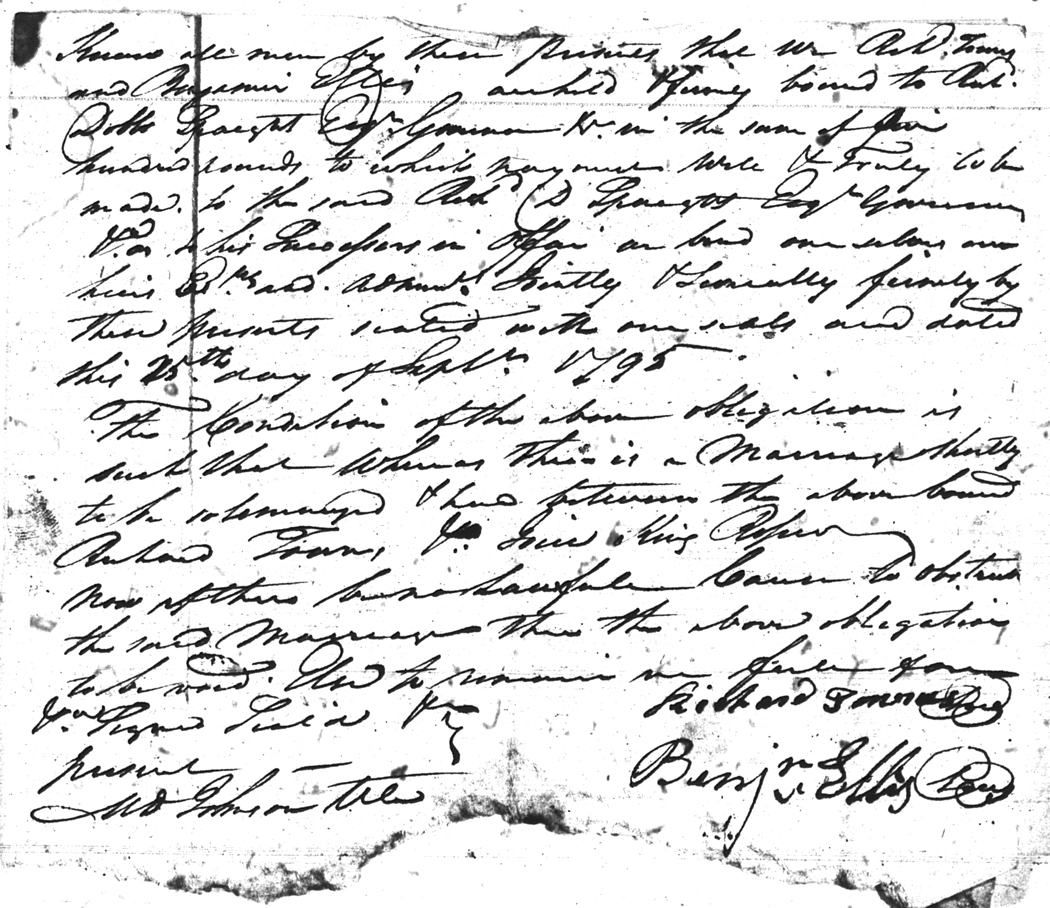 Know all men by these presents that we Richd. Towns
and Benjamin Ellis are held & firmly bound to Richd.
Dobbs Spaight Esqr. Governor &c. in the sum of five
hundred pounds to which payment well & Truly to be
made. to the said Richd D Spaight Esqr Governor
&c. or to his Successors in Office we bind our selves our
heirs Exrs. and. Admrs. Jointly & Severally firmly by
these presents sealed with our seals and dated
this 25th day of Septr. 1795.
The Condition of the above obligation is
such that Whereas there is a Marriage shortly
to be solemnized & had between the above bound
Richard Towns, & King
Now if there be no Lawfull Cause to obstruct
the said Marriage then the above obligation
to be void. Else to remain in full force
&c. Signed Seal'd &c Richard Towns Seal
present — Benjn Ellis Seal
Johnson